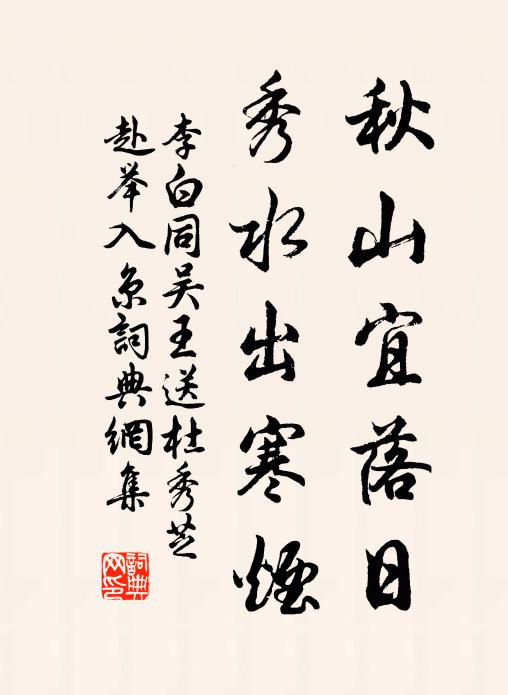 秋山宜落日
秀水出寒煙
李白同吴王送杜秀芝
赴举入京詞典網集
詞典
网印